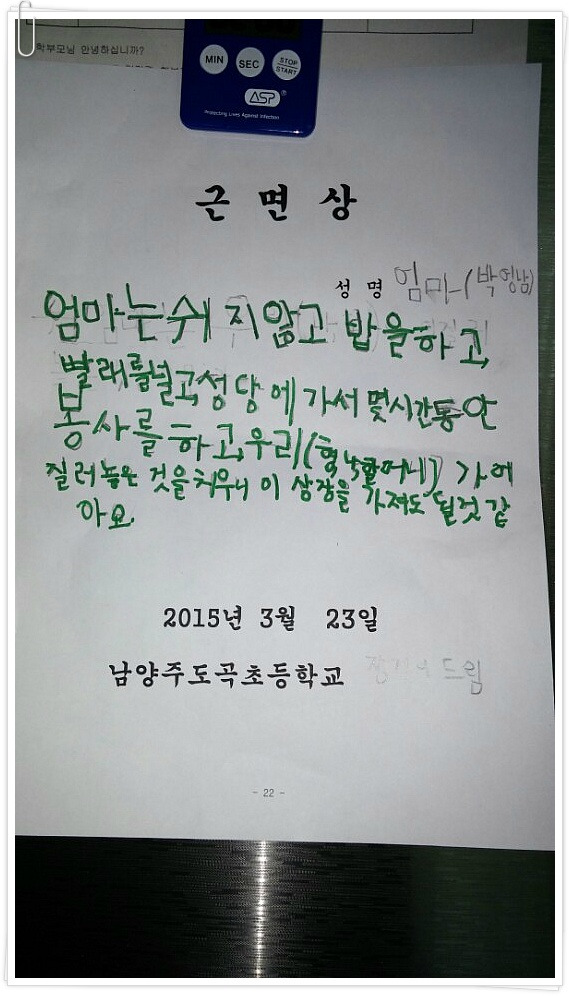 학부모님 안녕하십니까?
MIN SEC STOP/START
ASP®
Protecting Lives Against Infection
근 면 상
성 명 엄마-(박영남)
엄마는 쉬지 않고 밥을하고,
빨래를널고,성당에 가서 몇시간동안
봉사를 하고,우리(형,나,할머니)가 어
질러놓은 것을치우니 이 상장을 가져도 될것 같
아요.
2015년 3월 23일
남양주도곡초등학교 드림
- 22 -